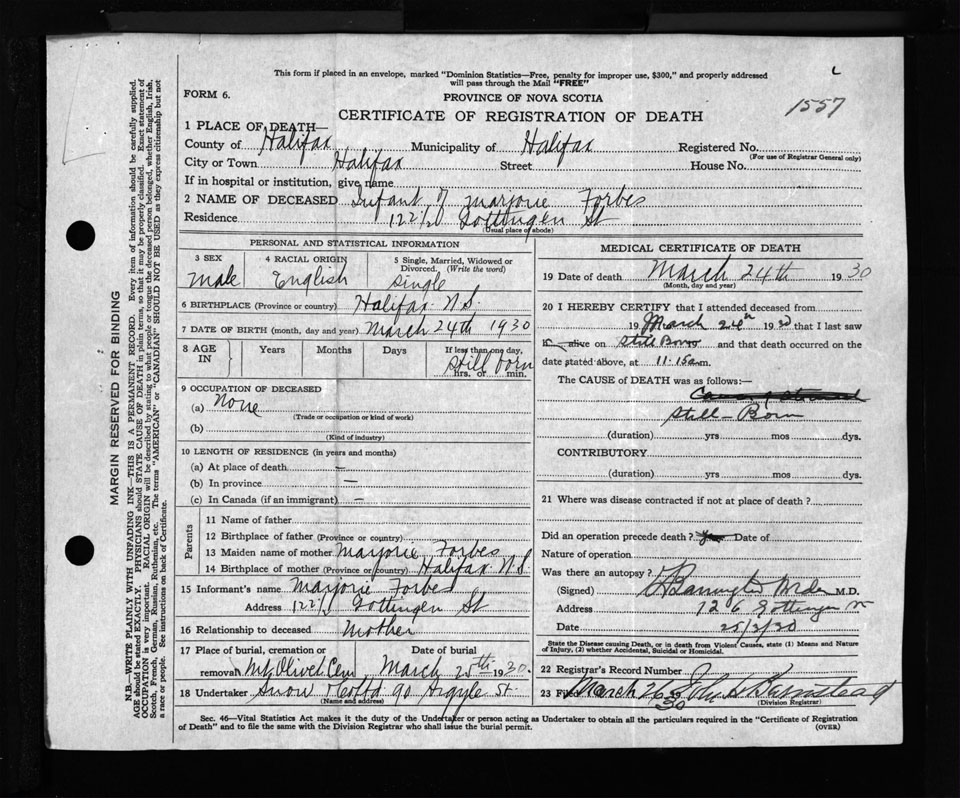 This form if placed in an envelope, marked "Dominion Statistics—Free, penalty for improper use, $300," and properly addressed
will pass through the Mail "FREE"
FORM 6.
PROVINCE OF NOVA SCOTIA
1557
CERTIFICATE OF REGISTRATION OF DEATH
1 PLACE OF DEATH—
County of Halifax Municipality of Halifax Registered No.
(For use of Registrar General only)
City or Town Halifax Street House No.
If in hospital or institution, give name
2 NAME OF DECEASED Infant of Marjorie Forbes
Residence Gottingen St
(Usual place of abode)
PERSONAL AND STATISTICAL INFORMATION
3 SEX 4 RACIAL ORIGIN 5 Single, Married, Widowed or Divorced. (Write the word)
Male English Single
6 BIRTHPLACE (Province or country) Halifax N.S.
7 DATE OF BIRTH (month, day and year) March 24th 1930
8 AGE IN Years Months Days If less than one day, hrs. or min.
Still born
9 OCCUPATION OF DECEASED
(a) None
(Trade or occupation or kind of work)
(b)
(Kind of industry)
10 LENGTH OF RESIDENCE (in years and months)
(a) At place of death —
(b) In province —
(c) In Canada (if an immigrant) —
Parents
11 Name of father
12 Birthplace of father (Province or country)
13 Maiden name of mother Marjorie Forbes
14 Birthplace of mother (Province or country) Halifax N.S.
15 Informant's name Marjorie Forbes
Address Gottingen St
16 Relationship to deceased Mother
17 Place of burial, cremation or removal Mt Olivet Cem Date of burial March 25th 1930
18 Undertaker Snow 90 Argyle St.
(Name and address)
MEDICAL CERTIFICATE OF DEATH
19 Date of death March 24th 1930
(Month, day and year)
20 I HEREBY CERTIFY that I attended deceased from
19 March 24th 1930 that I last saw
h alive on Still Born and that death occurred on the
date stated above, at 11.15 a m.
The CAUSE OF DEATH was as follows:—
Still-Born
(duration) yrs mos dys.
CONTRIBUTORY
(duration) yrs mos dys.
21 Where was disease contracted if not at place of death?
Did an operation precede death? Date of
Nature of operation
Was there an autopsy?
(Signed) M.D.
Address 126 Gottingen St
Date 25/3/30
State the Disease causing Death, or in death from Violent Causes, state (1) Means and Nature
of Injury, (2) whether Accidental, Suicidal or Homicidal.
22 Registrar's Record Number
23 Filed March 26 30
(Division Registrar)
Sec. 46—Vital Statistics Act makes it the duty of the Undertaker or person acting as Undertaker to obtain all the particulars required in the "Certificate of Registration
of Death" and to file the same with the Division Registrar who shall issue the burial permit.
(OVER)
MARGIN RESERVED FOR BINDING
N.B.—WRITE PLAINLY WITH UNFADING INK—THIS IS A PERMANENT RECORD. Every item of information should be carefully supplied.
AGE should be stated EXACTLY. PHYSICIANS should STATE CAUSE OF DEATH in plain terms, so that it may be properly classified. Exact statement of
OCCUPATION is very important. RACIAL ORIGIN will be described by stating to what people or tongue the deceased person belonged, whether English, Irish,
Scotch, French, German, Russian, Ruthenian, etc. The terms "AMERICAN" or "CANADIAN" SHOULD NOT BE USED as they express citizenship but not
a race or people. See instructions on back of Certificate.